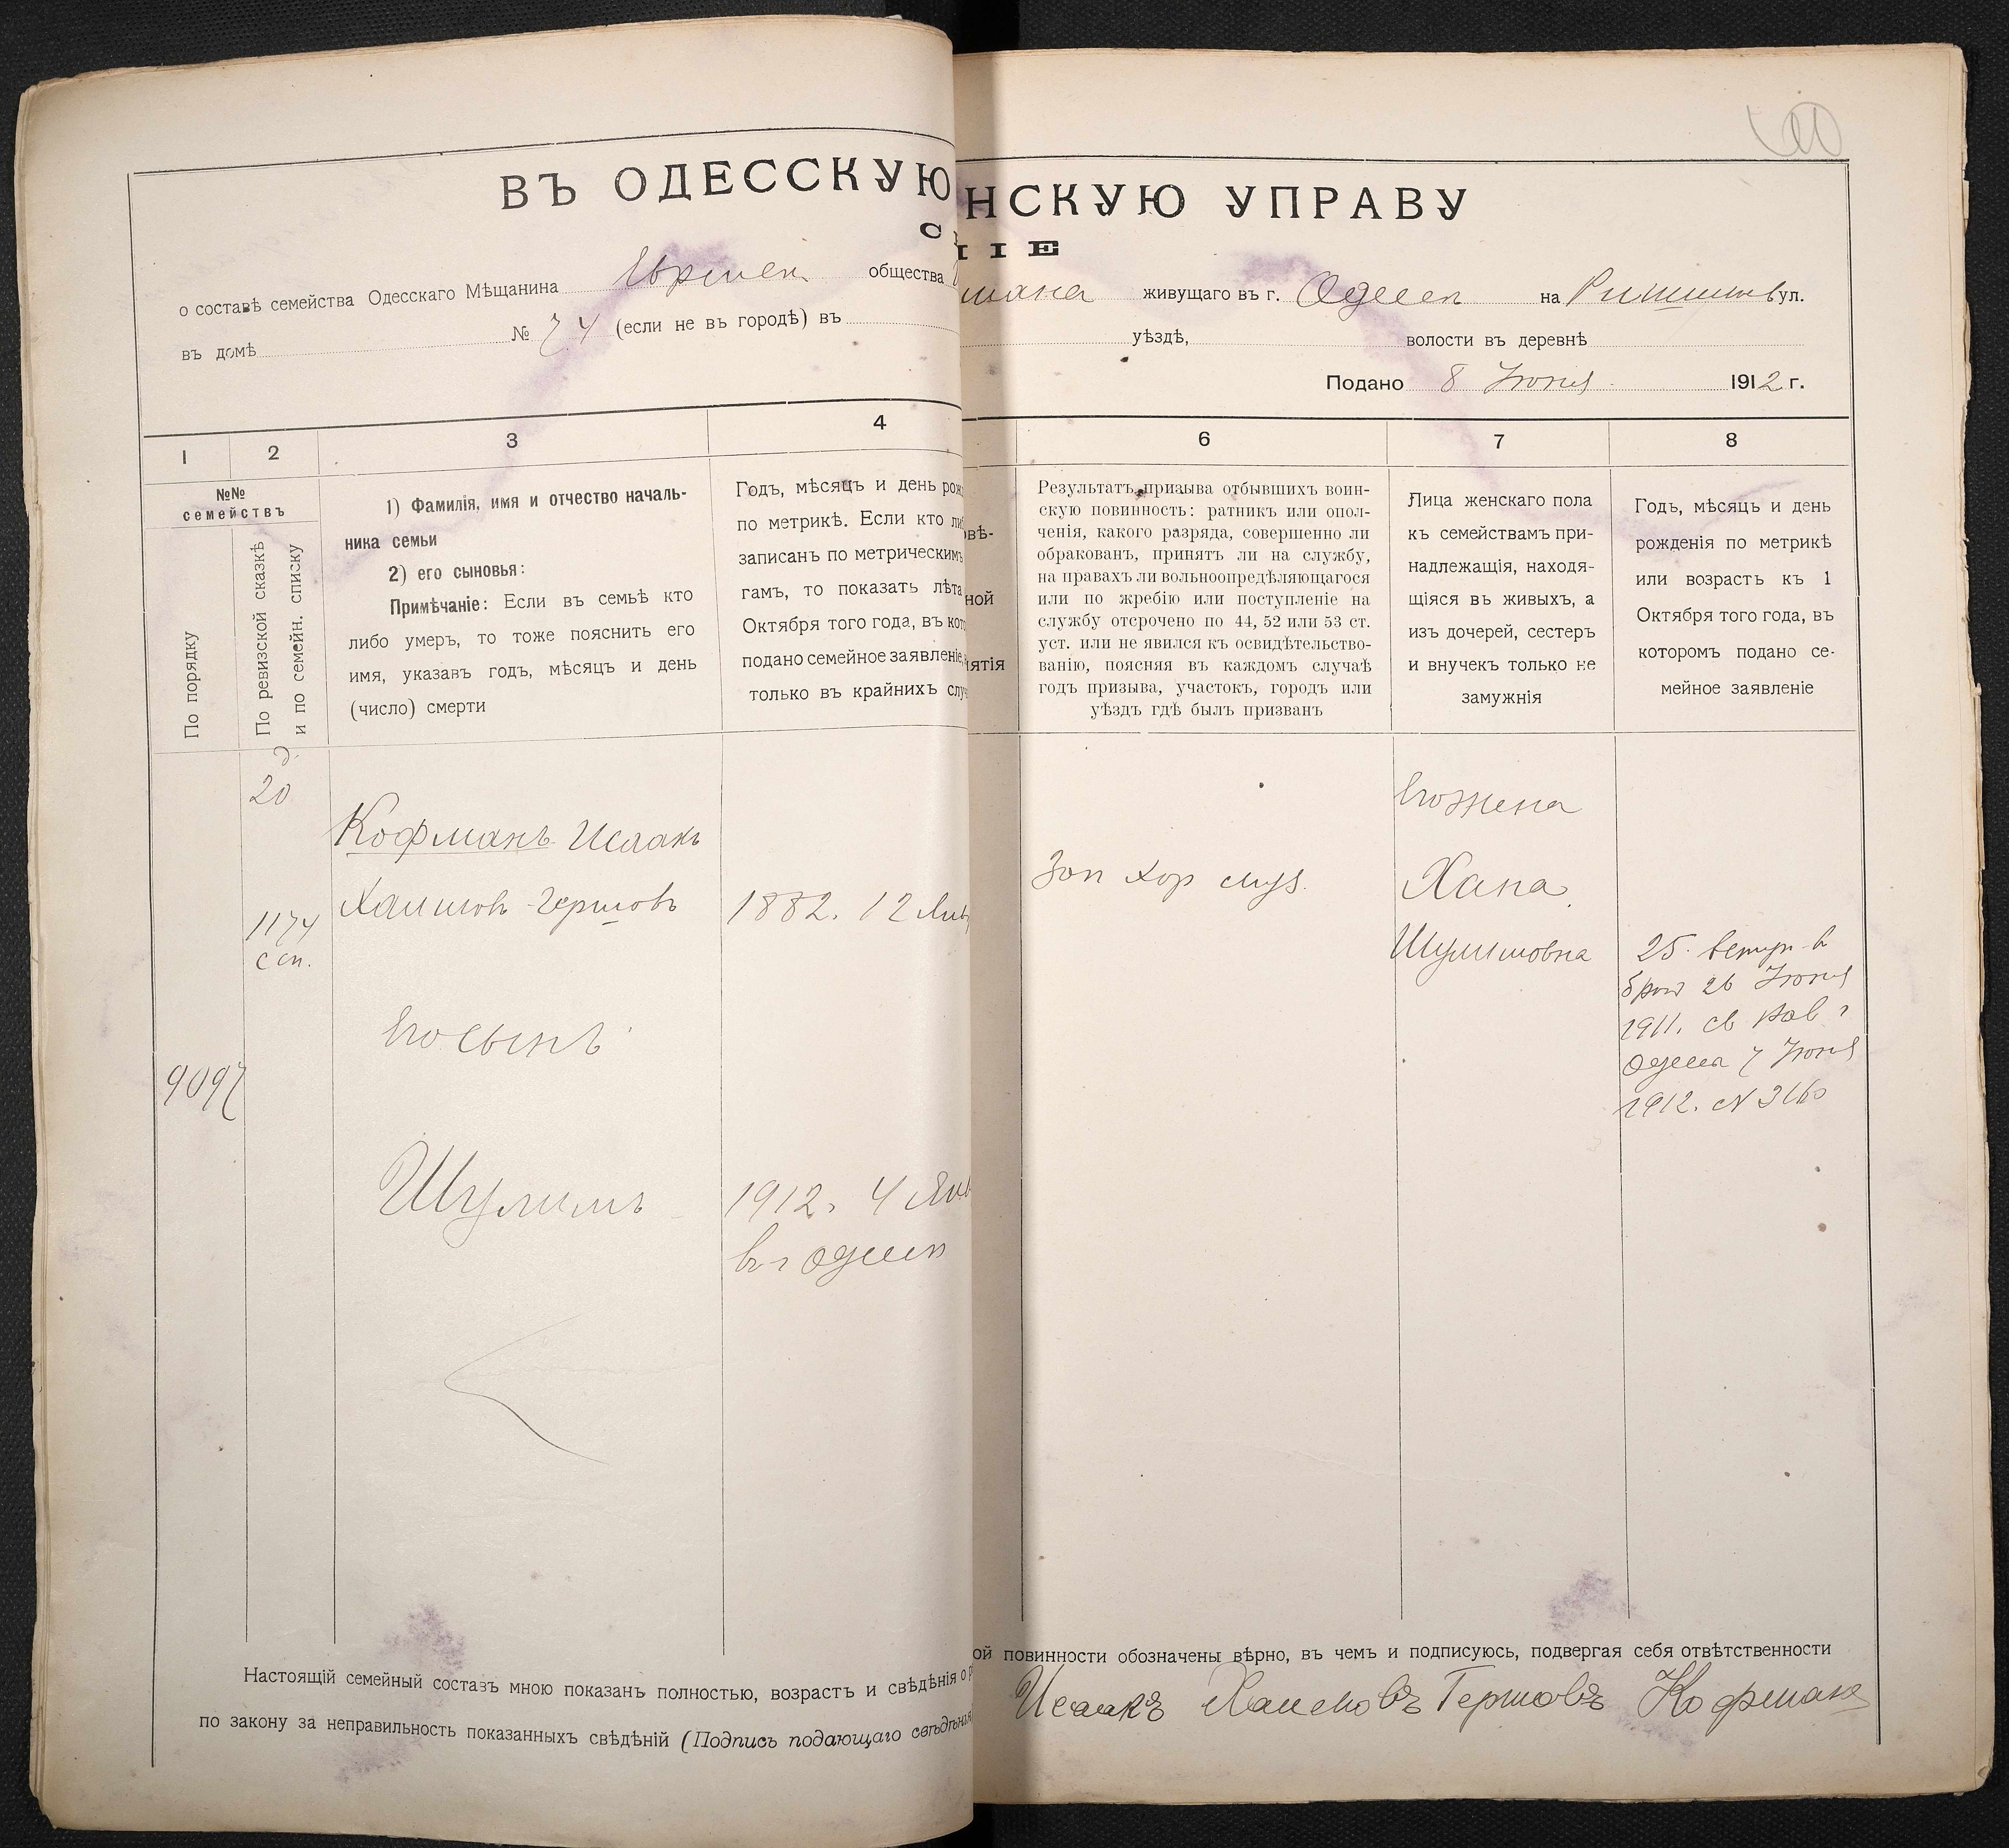 ВЪ ОДЕССКУЮ
НСКУЮ УПРАВУ
С
ІІЕ
о составѣ семейства Одесскаго Мѣщанина Еврейск общества
мана живущаго въ г. Одессѣ на ул.
въ домѣ № 74 (если не въ городѣ) въ
уѣздѣ, волости въ деревнѣ
Подано 8 Іюня 1912 г.
1 2 3 4
6 7 8
№№
семействъ
По порядку
По ревизской сказкѣ
и по семейн. списку
1) Фамилія, имя и отчество началь-
ника семьи
2) его сыновья:
Примѣчаніе: Если въ семьѣ кто
либо умеръ, то тоже пояснить его
имя, указавъ годъ, мѣсяцъ и день
(число) смерти
Годъ, мѣсяцъ и день рож
по метрикѣ. Если кто ли
записанъ по метрическимъ
гамъ, то показать лѣта
Октября того года, въ кот
подано семейное заявленіе,
только въ крайнихъ слу
овѣ-
ной
нятія
Результатъ призыва отбывшихъ воин-
скую повинность: ратникъ или опол-
ченія, какого разряда, совершенно ли
обракованъ, принятъ ли на службу,
на правахъ ли вольноопредѣляющагося
или по жребію или поступленіе на
службу отсрочено по 44, 52 или 53 ст.
уст. или не явился къ освидѣтельство-
ванію, поясняя въ каждомъ случаѣ
годъ призыва, участокъ, городъ или
уѣздъ гдѣ былъ призванъ
Лица женскаго пола
къ семействамъ при-
надлежащія, находя-
щіяся въ живыхъ, а
изъ дочерей, сестеръ
и внучекъ только не
замужнія
Годъ, мѣсяцъ и день
рожденія по метрикѣ
или возрастъ къ 1
Октября того года, въ
которомъ подано се-
мейное заявленіе
20
1174
с сп.
9097
Кофманъ Исаакъ
Хаимовъ-Гершовъ
1882. 12 Янв
Его сынъ
Шулимъ
1912. 4 Янв
въ г Одессѣ
Зап
Его жена
Хана
Шулимовна
25. вступ. в
бракъ 26 Іюня
1911. св Рав г
Одесса 7 Іюня
1912. №
Настоящій семейный составъ мною показанъ полностью, возрастъ и свѣдѣнія о
по закону за неправильность показанныхъ свѣдѣній (Подпись подающаго свѣдѣнія
ой повинности обозначены вѣрно, въ чемъ и подписуюсь, подвергая себя отвѣтственности
Исаакъ Хаимовъ Гершовъ Кофманъ